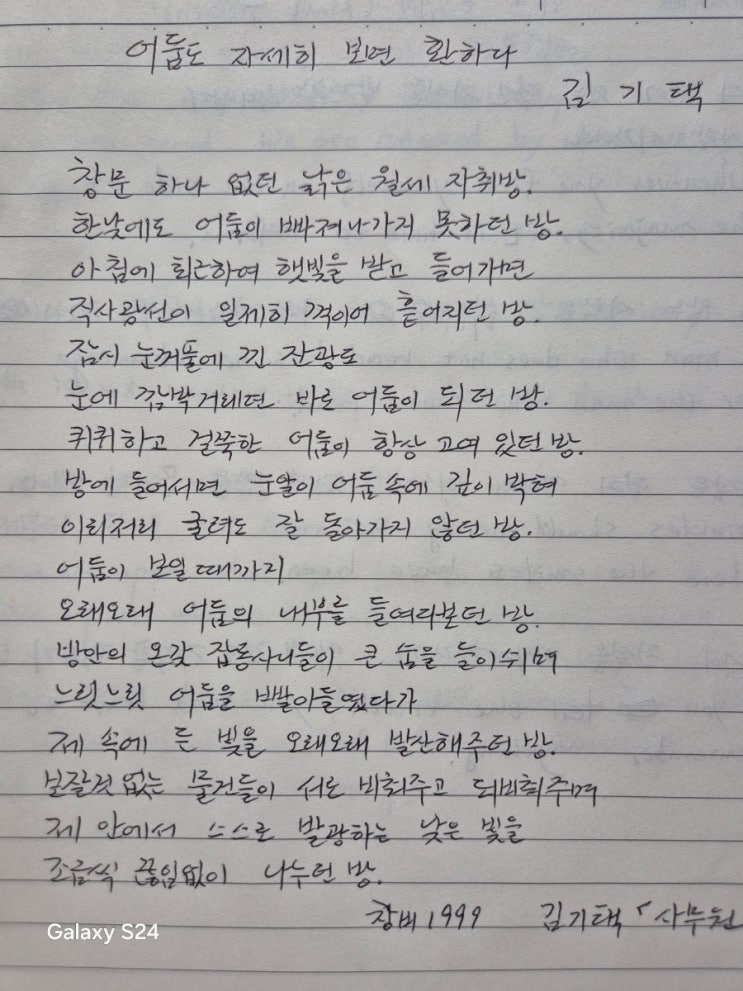 어둠도 자세히 보면 환하다
김기택
창문 하나 없던 낡은 월세 자취방.
한낮에도 어둠이 빠져나가지 못하던 방.
아침에 퇴근하여 햇빛을 받고 들어가면
직사광선이 일제히 꺾이어 흩어지던 방.
잠시 눈꺼풀에 낀 잔광도
눈에 깜박거리면 바로 어둠이 되던 방.
퀴퀴하고 걸쭉한 어둠이 항상 고여 있던 방.
방에 들어서면 눈알이 어둠 속에 깊이 박혀
이리저리 굴려도 잘 돌아가지 않던 방.
어둠이 보일 때까지
오래오래 어둠의 내부를 들여다본던 방.
방안의 온갖 잡동사니들이 큰 숨을 들이쉬며
느릿느릿 어둠을 빨아들였다가
제 속에 든 빛을 오래오래 발산해주던 방.
보잘것없는 물건들이 서로 비춰주고 되비춰주며
제 안에서 스스로 발광하는 낮은 빛을
조금씩 끊임없이 나누던 방.
창비 1999 김기택 「사무원
Galaxy S24